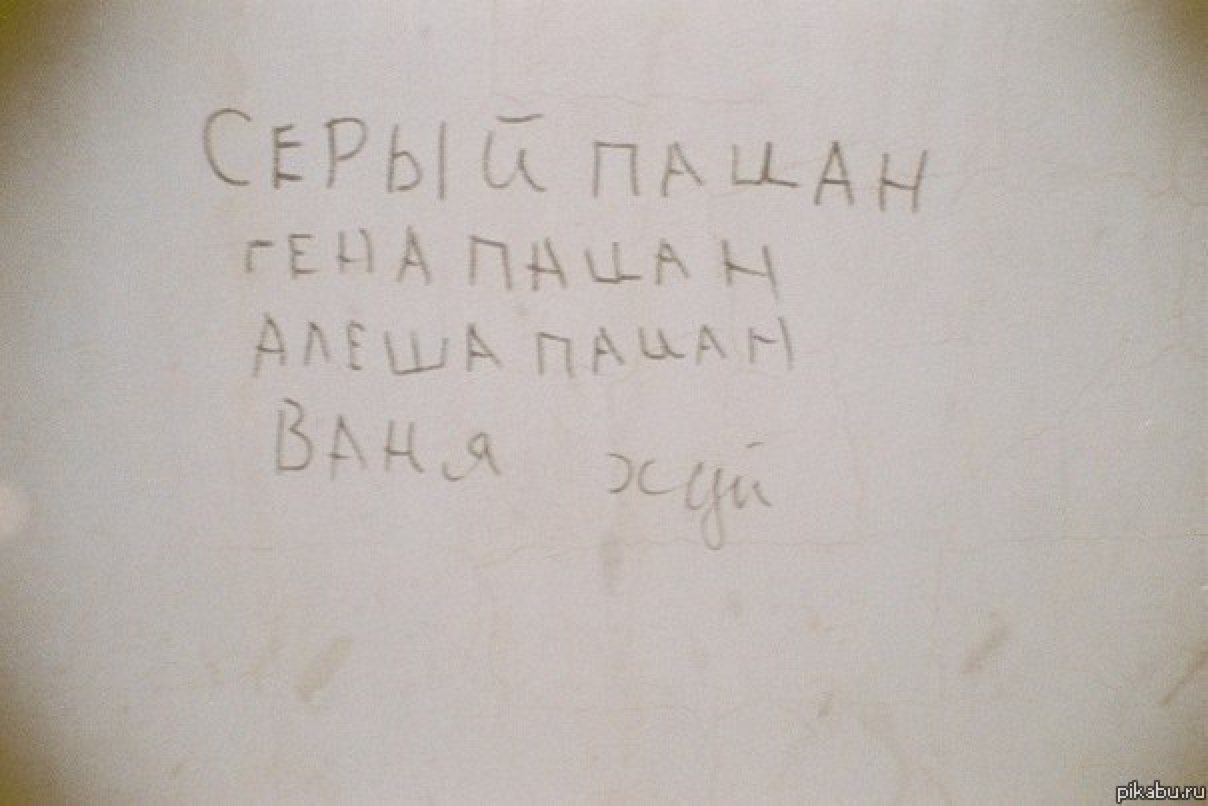 СЕРЫЙ ПАЦАН
ГЕНА ПАЦАН
АЛЕША ПАЦАН
ВАНЯ хуй
pikabu.ru